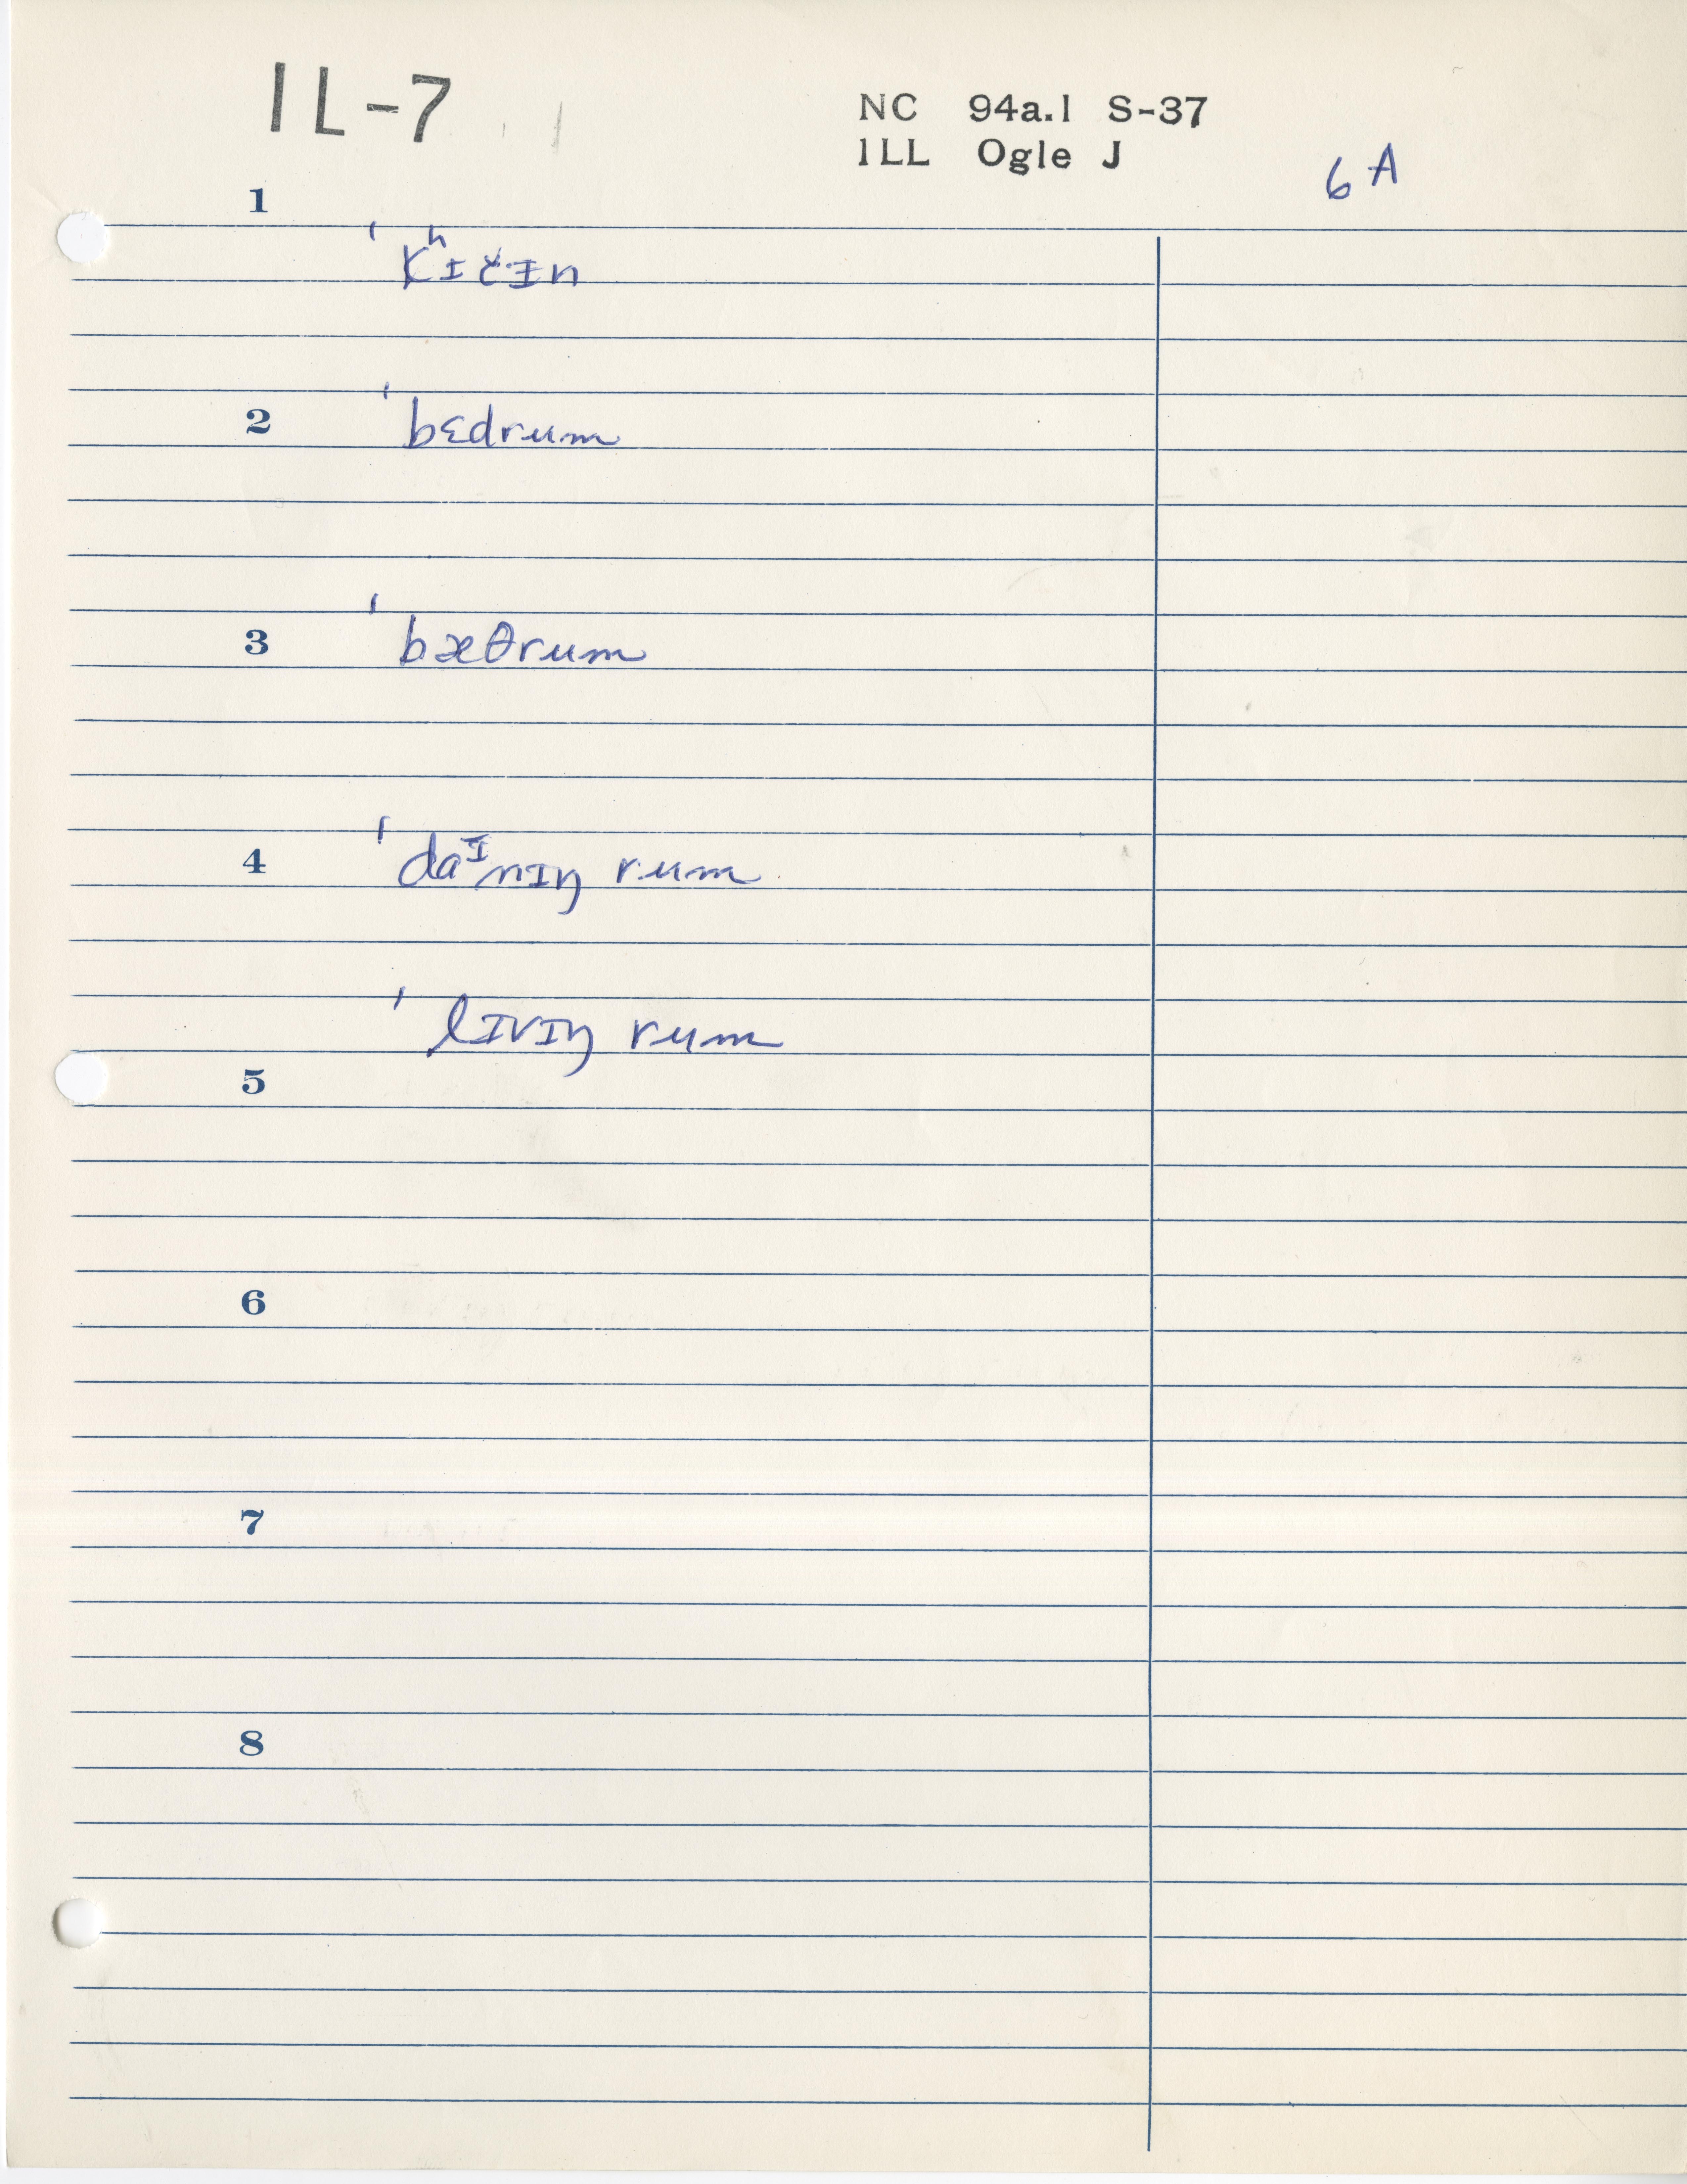 IL-7
NC 94a.1 S-37
ILL Ogle J
6A
1
ˈkʰɪčɪn
2
ˈbɛdrum
3
ˈbæθrum
4
ˈdaᶦnɪŋ rum
ˈlɪvɪŋ rum
5
6
7
8